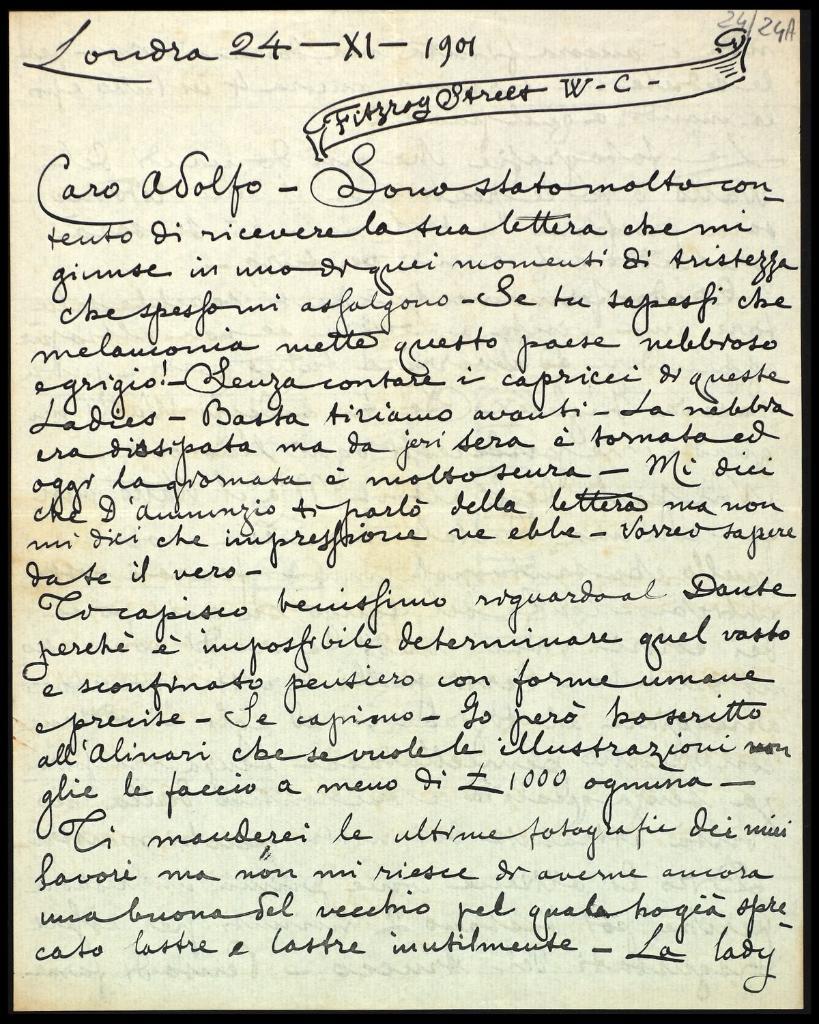 24/24A
Londra 24 — XI — 1901
Fitzroy Street W - C -
Caro Adolfo - Sono stato molto con-
tento di ricevere la tua lettera che mi
giunse in uno di quei momenti di tristezza
che spesso mi assalgono - Se tu sapessi che
melanconia mette questo paese nebbroso
e grigio! - Senza contare i capricci di queste
Ladies - Basta tiriamo avanti - La nebbia
era dissipata ma da jeri sera è tornata ed
oggi la giornata è molto scura - Mi dici
che D'annunzio ti parlò della lettera ma non
mi dici che impressione ne ebbe - Vorrei sapere
da te il vero -
Ti capisco benissimo riguardo al Dante
perchè è impossibile determinare quel vasto
e sconfinato pensiero con forme umane
e precise - Se capimo - Io però ho scritto
all'Alinari che se vuole le illustrazioni non
glie le faccio a meno di £ 1000 ognuna -
Ti manderei le ultime fotografie dei miei
lavori ma non mi riesce di averne ancora
una buona del vecchio pel quale ho già spre-
cato lastre e lastre inutilmente - La lady